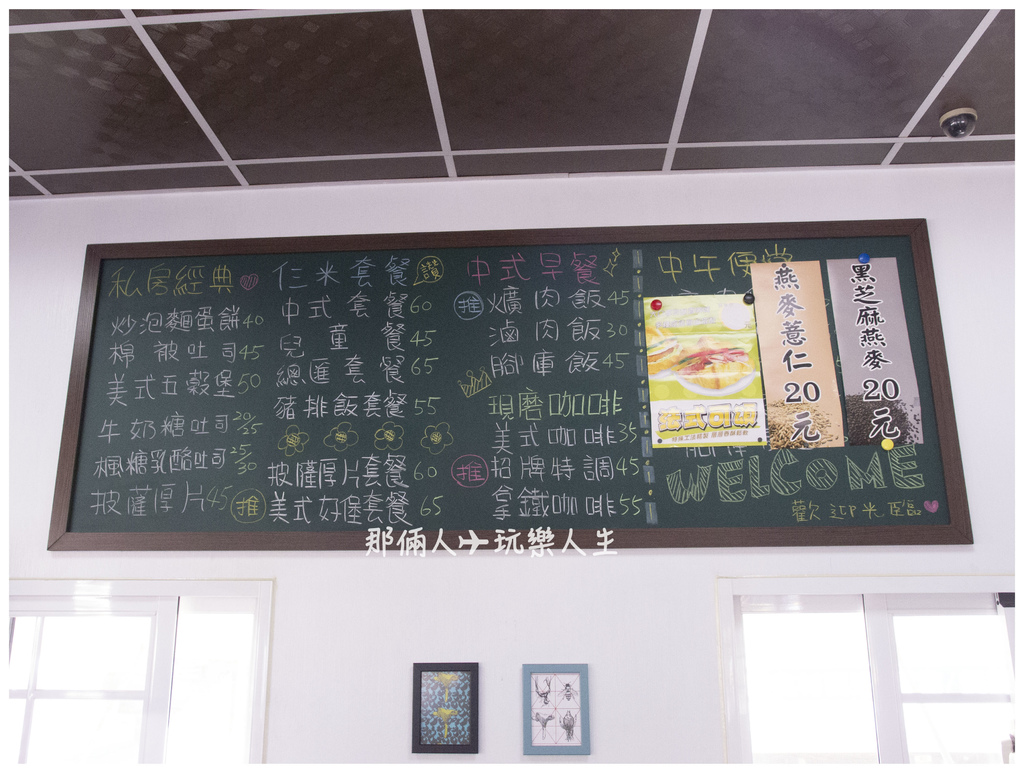 私房經典
炒泡麵蛋餅40
棉被吐司45
美式五穀堡50
牛奶糖吐司20/25
楓糖乳酪吐司25/30
披薩厚片45 推
仁米套餐 讚
中式套餐60
兒童餐45
總匯套餐65
豬排飯套餐55
披薩厚片套餐60
美式好堡套餐65
中式早餐
推 爌肉飯45
滷肉飯30
腳庫飯45
現磨咖啡
美式咖啡35
推 招牌特調45
拿鐵咖啡55
中午便當
法式可頌
燕麥薏仁20元
黑芝麻燕麥20元
WELCOME
歡迎光臨
那倆人 玩樂人生